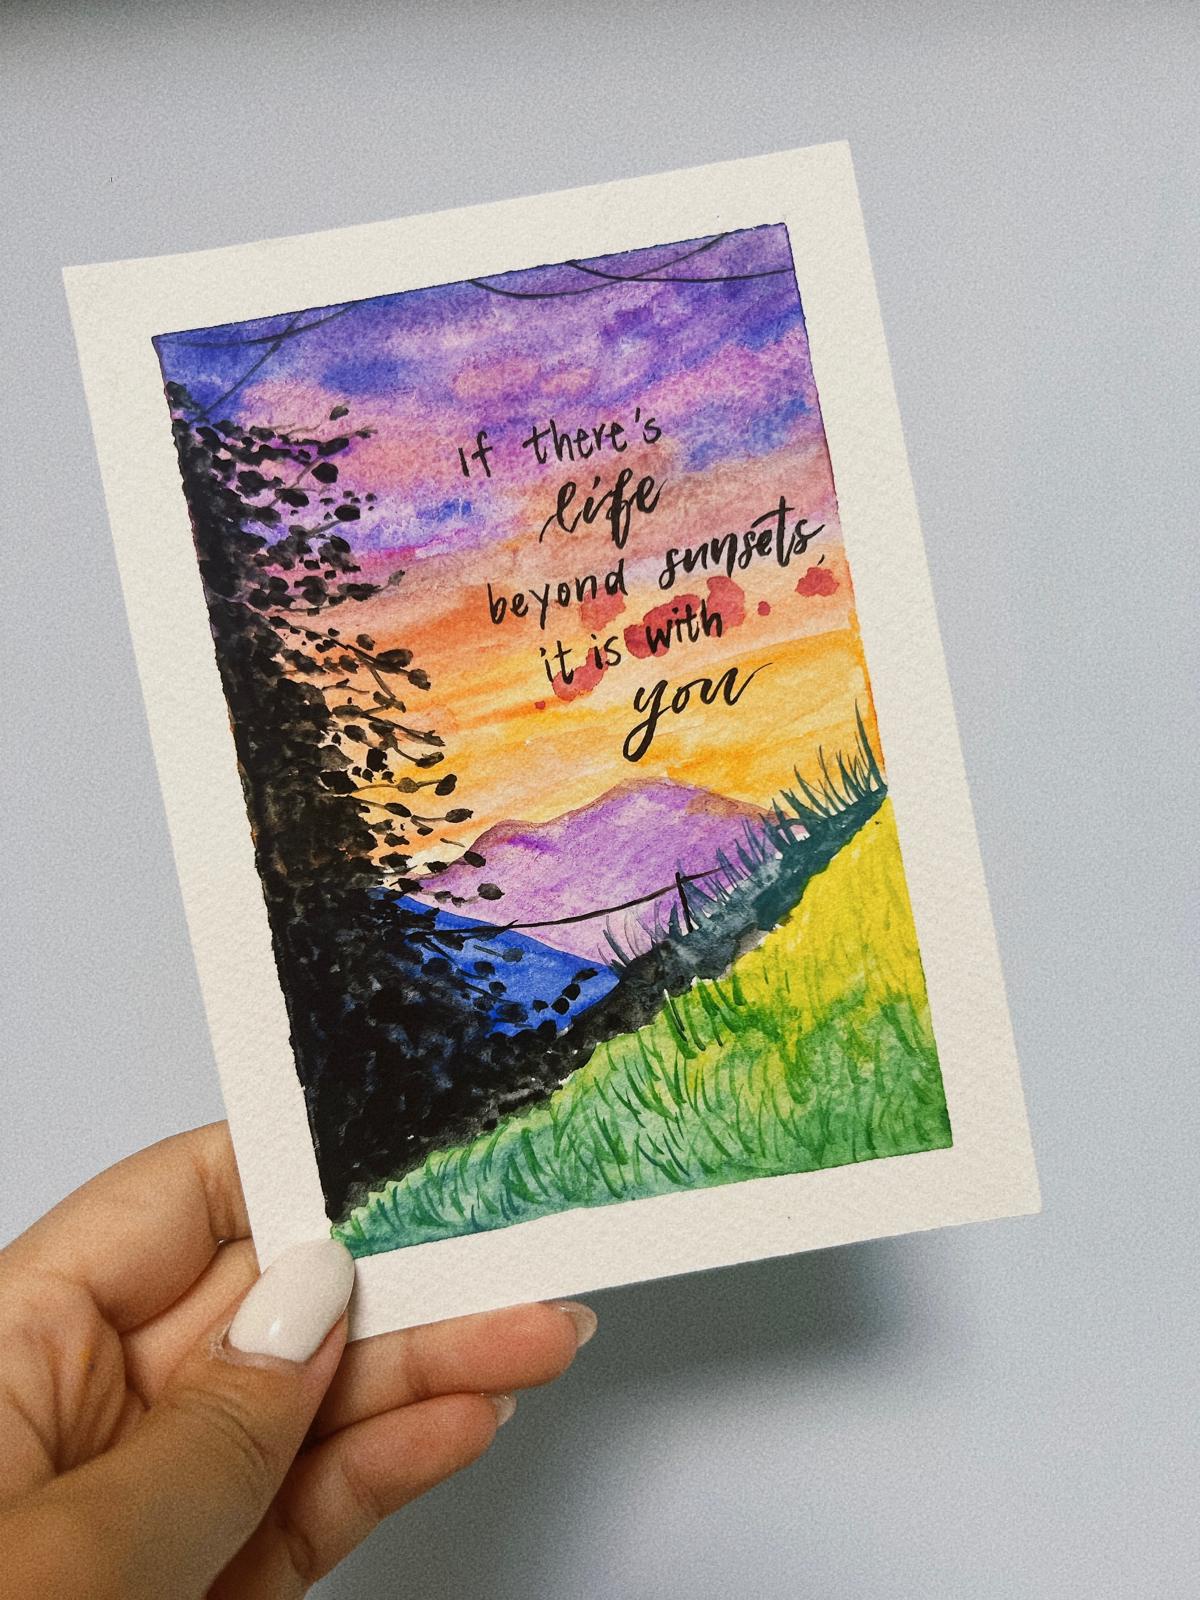 If there's
life
beyond sunsets,
it is with
you